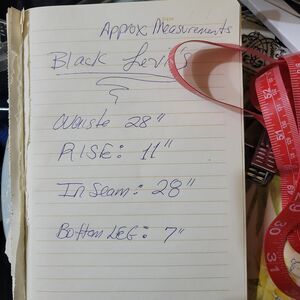 Approx Measurements
Black Levi's
Waiste 28"
RISE: 11"
InSeam: 28"
Bottom LEG: 7"